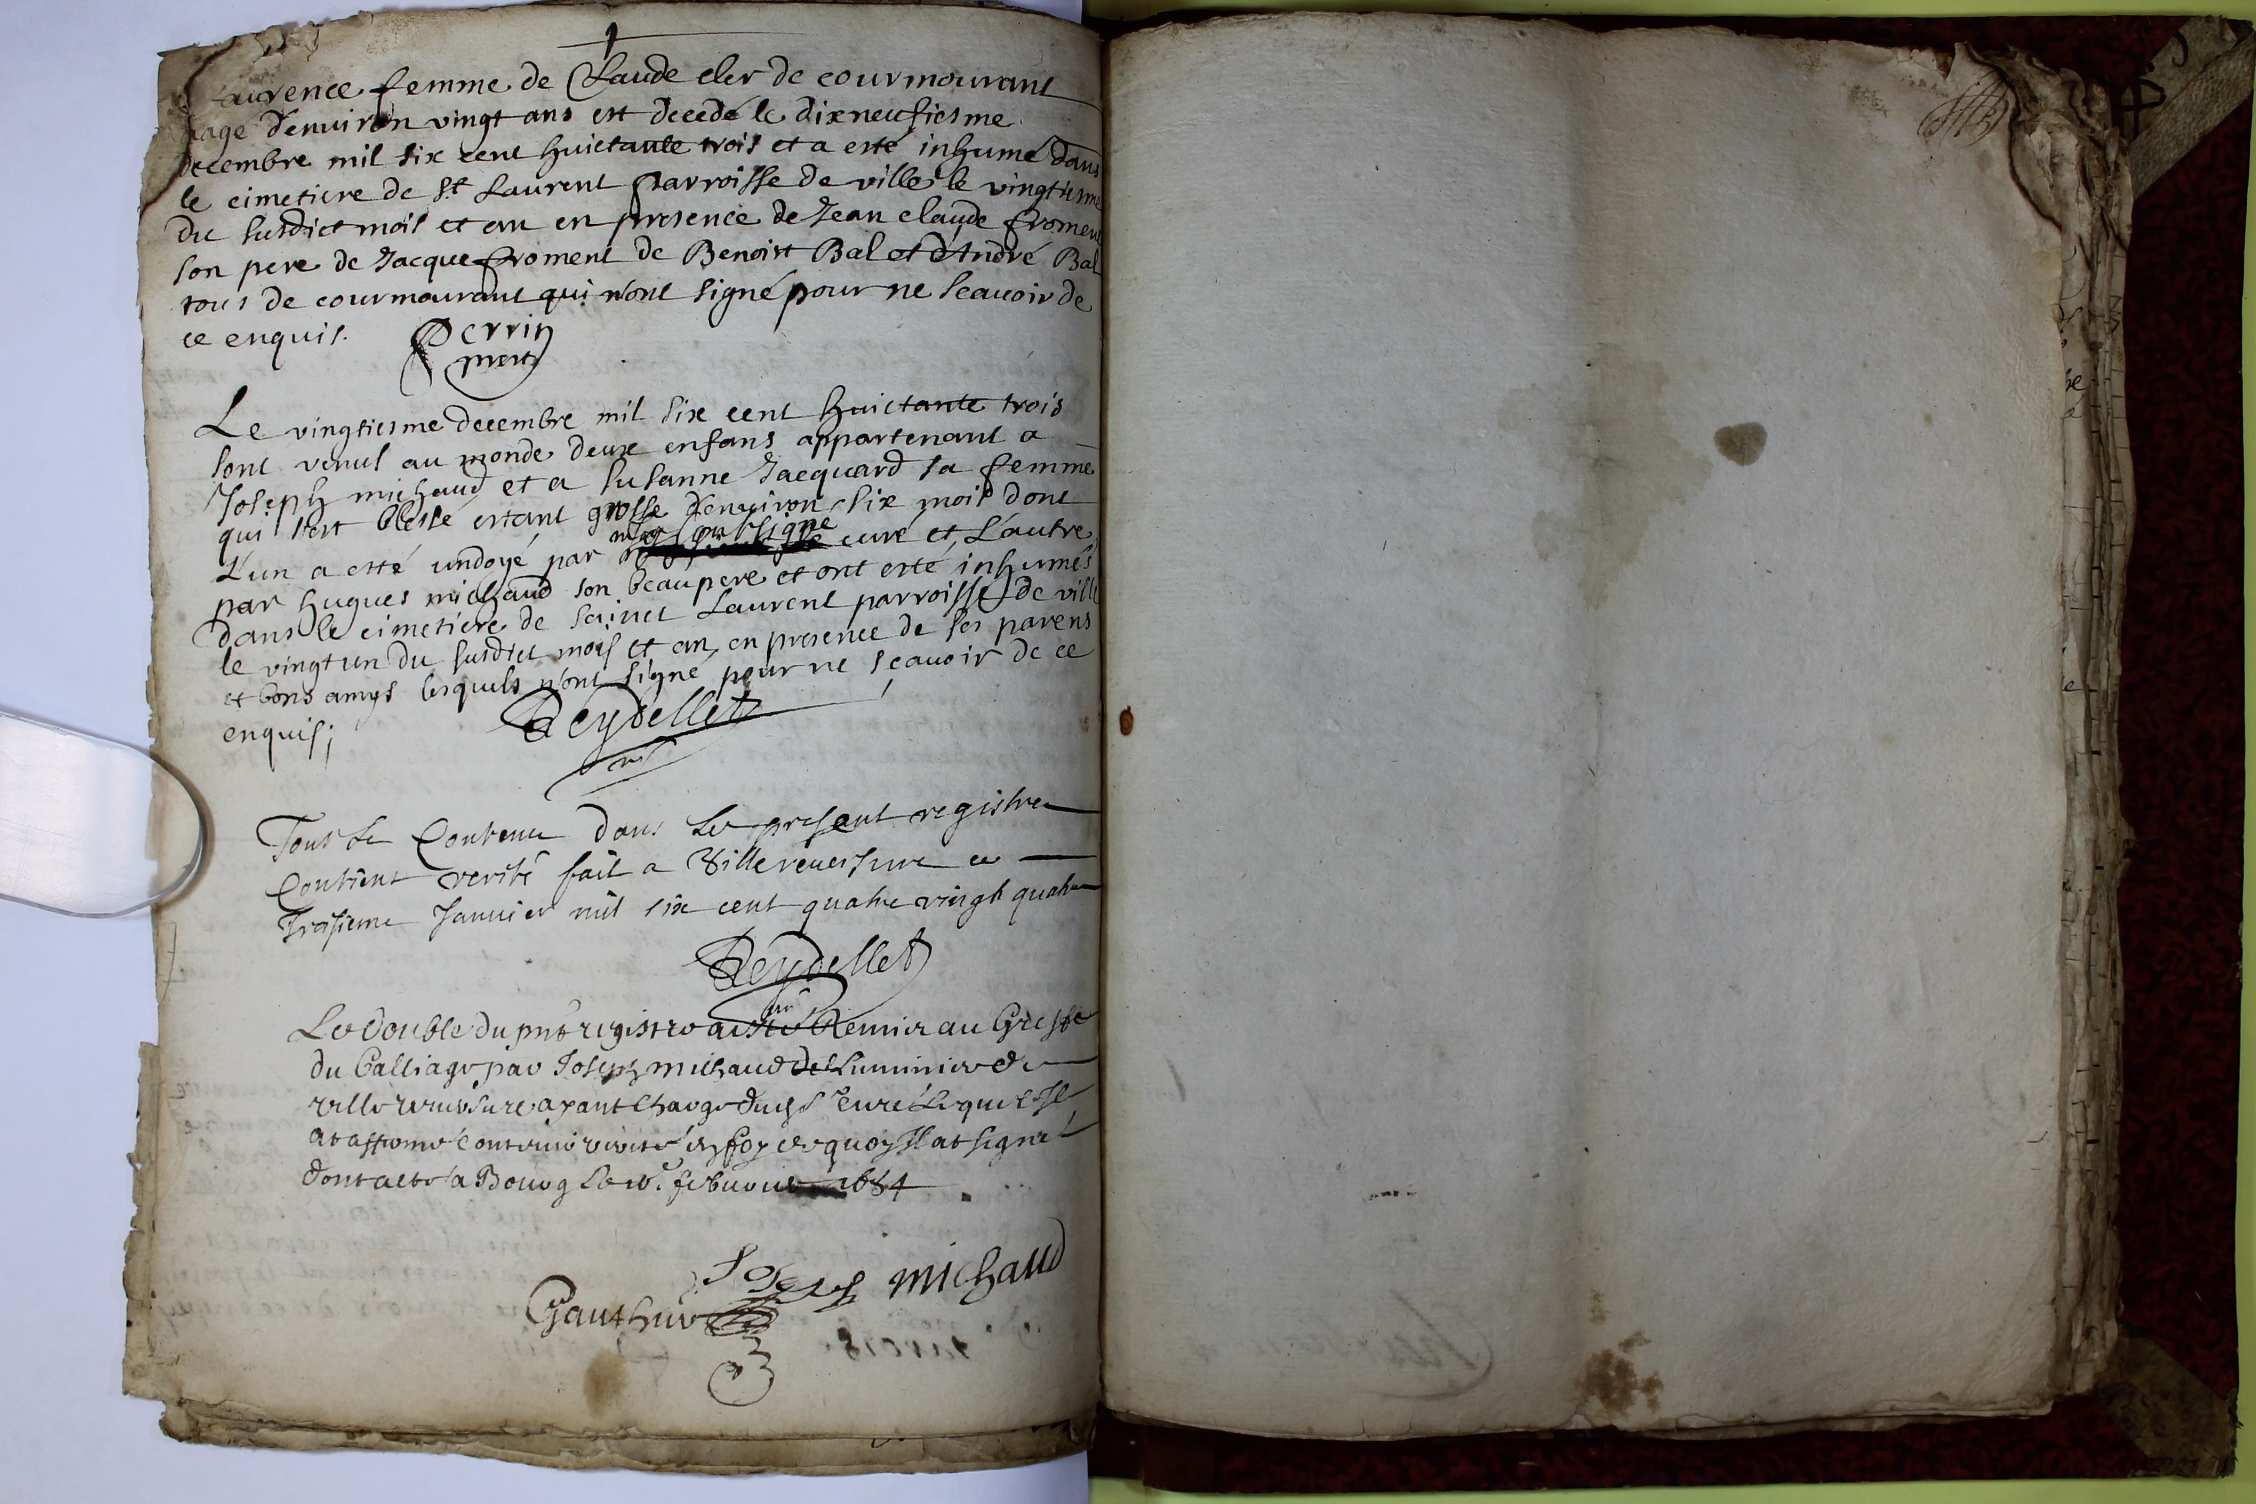 Laurence femme de Claude cler de courmourant
aage d'enuiron vingt ans est decedé le dixneufiesme
decembre mil six cent huictante trois et a esté inhumé dans
le cimetiere de St Laurent parroisse de ville le vingtiesme
du susdict mois et an en presence de Jean claude froment
son pere de Jacque froment de Benoist Bal et d'André Bal
tous de courmourant qui n'ont signé pour ne scauoir de
ce enquis. Perrin
Le vingtiesme decembre mil six cent huictante trois
sont venus au monde deux enfans appartenant a
Joseph michaud et a susanne Jacquard sa femme
qui s'est blessé estant grosse d'enuiron six mois dont
l'un a esté undoyé par soubsigné curé et L'autre
par hugues michaud son beaupere et ont esté inhumés
dans le cimetiere de sainct Laurent parroisse de ville
le vingt un du susdict mois et an en presence de ses parens
et bons amys lesquels n'ont signé pour ne scauoir de ce
enquis; Reydellet
Tout Le Contenu dans Le present registre
Contient verité fait a Villereuersure ce
Troisieme Januier mil six cent quatre vingt quatre
Reydellet
Le double du pnt registre a esté Remis au Greffe
du balliage par Joseph michaud Luminier de
villereuersure ayant charge dud Sr Curé Lequel Il
at affirmé contenir verité en foy de quoy Il at signé
dont acte a Bourg Le feburier 1684
Joseph michaud
Gauthier